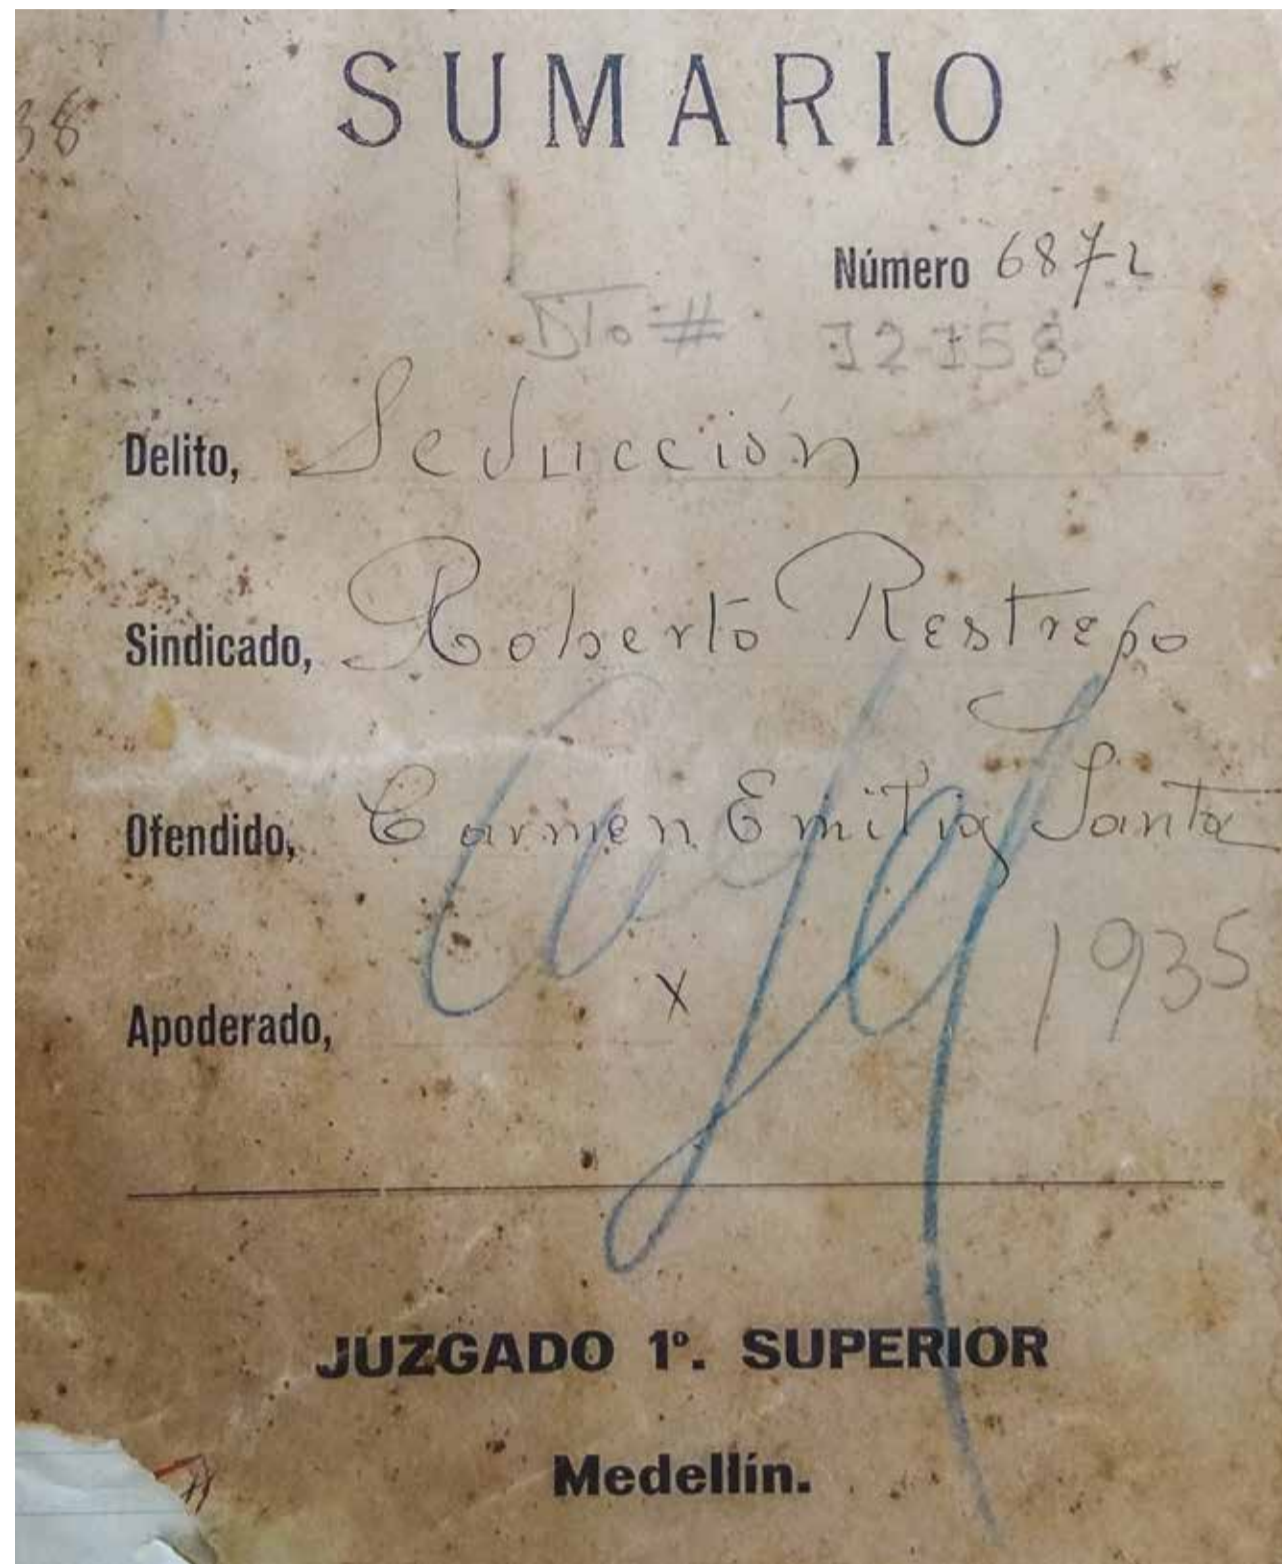 SUMARIO
38
Número 6872
Dto # 12158
Delito, Seducción
Sindicado, Roberto Restrepo
Ofendido, Carmen Emilia Santa
1935
Apoderado, X
JUZGADO 1º. SUPERIOR
Medellín.